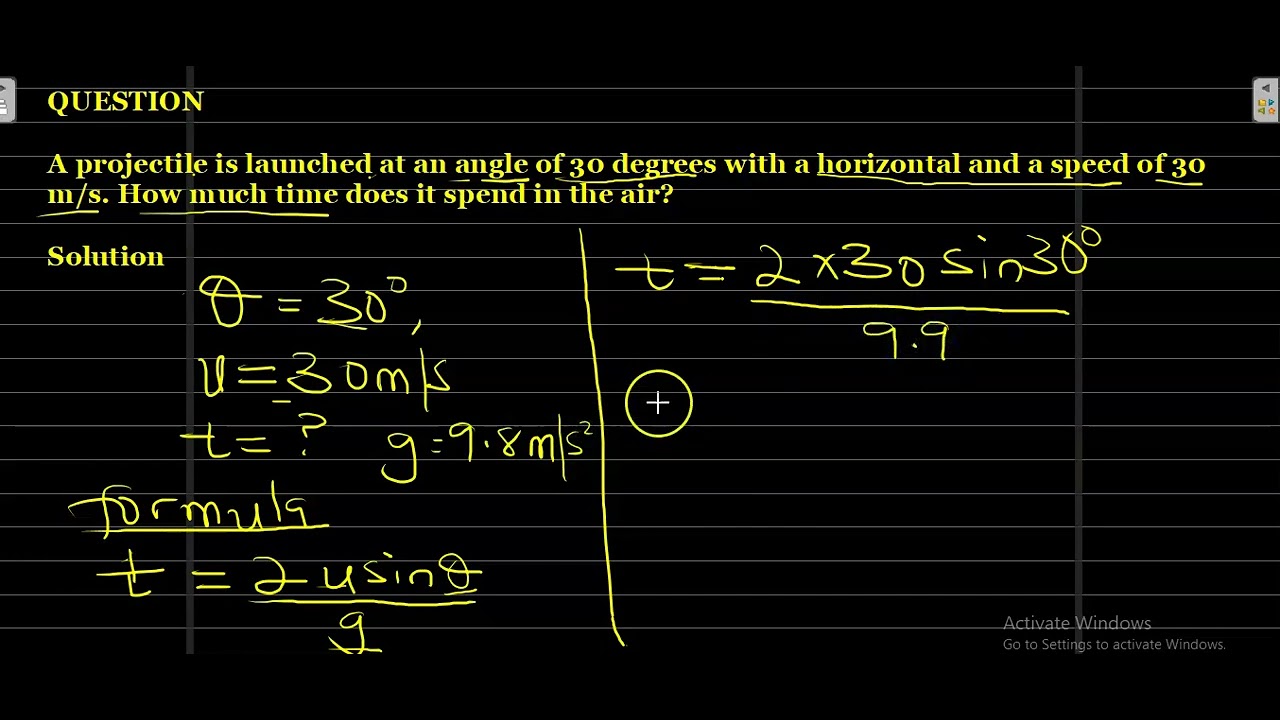 QUESTION
A projectile is launched at an angle of 30 degrees with a horizontal and a speed of 30
m/s. How much time does it spend in the air?
Solution
θ = 30°,
u = 30m/s
t = ? g = 9.8m/s²
formula
t = 2usinθ
g
t = 2×30 sin30°
9.9
Activate Windows
Go to Settings to activate Windows.